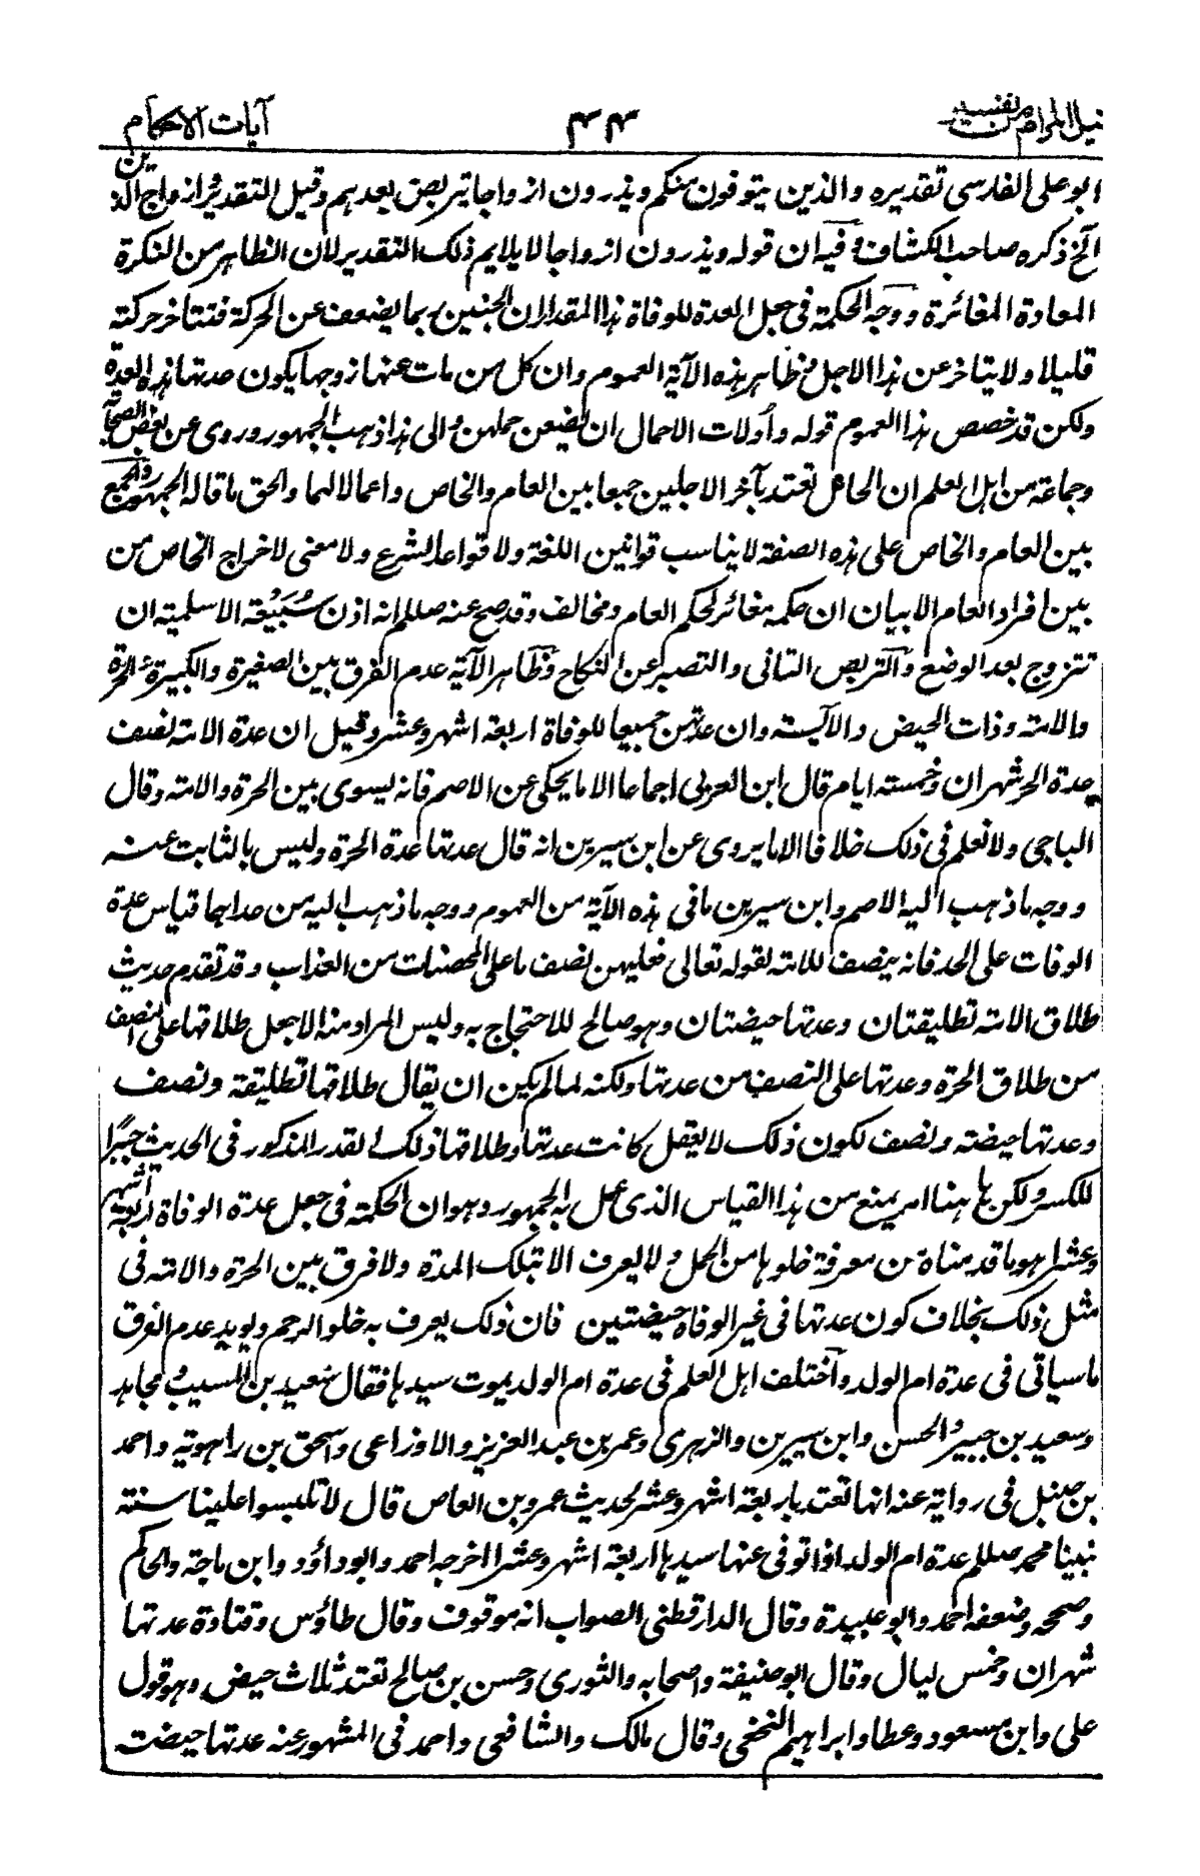 نيل المرام من تفسير ٤٤ آيات الاحكام
ابو علی الفارسی تقديره والذين يتوفون منكم ويذرون ازواجا يتربصن بعدهم وقيل التقدير وازواج الذين
الخ ذكره صاحب الكشاف وفيه ان قوله ويذرون ازواجا لا يلايم ذلك التقدير لان الظاهر من النكرة
المعادة المغائرة ووجه الحكمة فی جعل العدة للوفاة هذا المقدار ان الجنين ربما يضعف عن الحركة فتتأخر حركته
قليلا ولا يتأخر عن هذا الاجل وظاهر هذه الآية العموم وان كل من مات عنها زوجها يكون عدتها هذه العدة
ولكن قد خصص هذا العموم قوله وأولات الاحمال ان يضعن حملهن والی هذا ذهب الجمهور وروی عن بعض الصحابة
وجماعة من اهل العلم ان الحامل تعتد بآخر الاجلين جمعا بين العام والخاص واعمالا لهما والحق ما قاله الجمهور والجمع
بين العام والخاص علی هذه الصفة لا يناسب قوانين اللغة ولا قواعد الشرع ولا معنی لاخراج الخاص من
بين افراد العام الا بيان ان حكمه مغائر لحكم العام ومخالف وقد صح عنه صللم انه اذن سُبَيْعة الاسلمية ان
تتزوج بعد الوضع والتربص التانی والتصبر عن النكاح وظاهر الآية عدم الفرق بين الصغيرة والكبيرة والحرة
والامة وذات الحيض والآيسة وان عدتهن جميعا للوفاة اربعة اشهر وعشر وقيل ان عدة الامة نصف
عدة الحر شهران وخمسة ايام قال ابن العربی اجماعا الا ما يحكی عن الاصم فانه يسوی بين الحرة والامة وقال
الباجی ولا نعلم فی ذلك خلافا الا ما يروی عن ابن سيرين انه قال عدتها عدة الحرة وليس بالثابت عنه
ووجه ما ذهب اليه الاصم وابن سيرين ما فی هذه الآية من العموم ووجه ما ذهب اليه من عداهما قياس عدة
الوفات علی الحد فانه ينصف للامة لقوله تعالی فعليهن نصف ما علی المحصنات من العذاب وقد تقدم حديث
طلاق الامة تطليقتان وعدتها حيضتان وهو صالح للاحتجاج به وليس المراد منه الا جعل طلاقها علی النصف
من طلاق الحرة وعدتها علی النصف من عدتها ولكنه لما لم يكن ان يقال طلاقها تطليقة ونصف
وعدتها حيضة ونصف لكون ذلك لا يعقل كانت عدتها وطلاقها ذلك القدر المذكور فی الحديث جبرًا
للكسر ولكن ها هنا امر يمنع من هذا القياس الذی عمل به الجمهور وهو ان الحكمة فی جعل عدة الوفاة اربعة اشهر
وعشرا هو ما قدمناه من معرفة خلوها من الحمل ولا يعرف الا بتلك المدة ولا فرق بين الحرة والامة فی
مثل ذلك بخلاف كون عدتها فی غير الوفاة حيضتين فان ذلك يعرف به خلو الرحم ويويد عدم الفرق
ما سياتی فی عدة ام الولد واختلف اهل العلم فی عدة ام الولد بموت سيدها فقال سعيد بن المسيب ومجاهد
وسعيد بن جبير والحسن وابن سيرين والزهری وعمر بن عبد العزيز والاوزاعی واسحق بن راهويه واحمد
بن حنبل فی رواية عنه انها تعتد باربعة اشهر وعشر لحديث عمرو بن العاص قال لا تلبسوا علينا سنة
نبينا محمد صللم عدة ام الولد اذا توفی عنها سيدها اربعة اشهر وعشرا اخرجه احمد وابو داؤد وابن ماجة والحاكم
وصححه وضعفه احمد وابو عبيدة وقال الدارقطنی الصواب انه موقوف وقال طاؤس وقتادة عدتها
شهران وخمس ليال وقال ابو حنيفة واصحابه والثوری وحسن بن صالح تعتد ثلاث حيض وهو قول
علی وابن مسعود وعطا وابراهيم النخعی وقال مالك والشافعی واحمد فی المشهور عنه عدتها حيضة